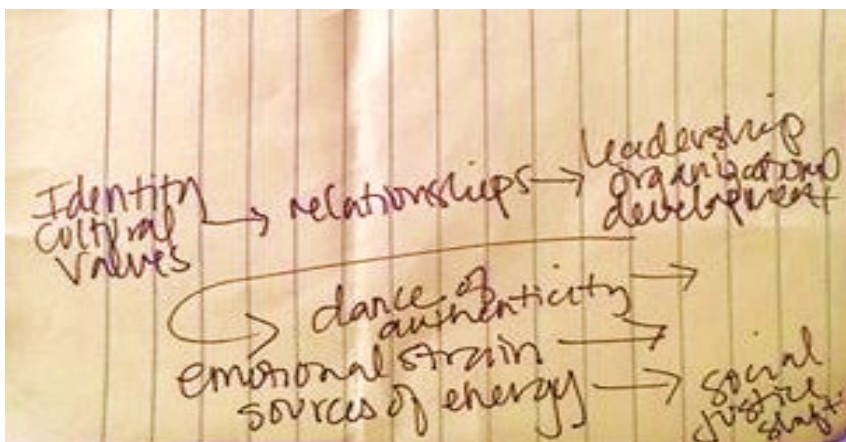 Identity
cultural
values
relationships
leadership
organizational
development
dance of
authenticity
emotional strain
sources of energy
social
justice